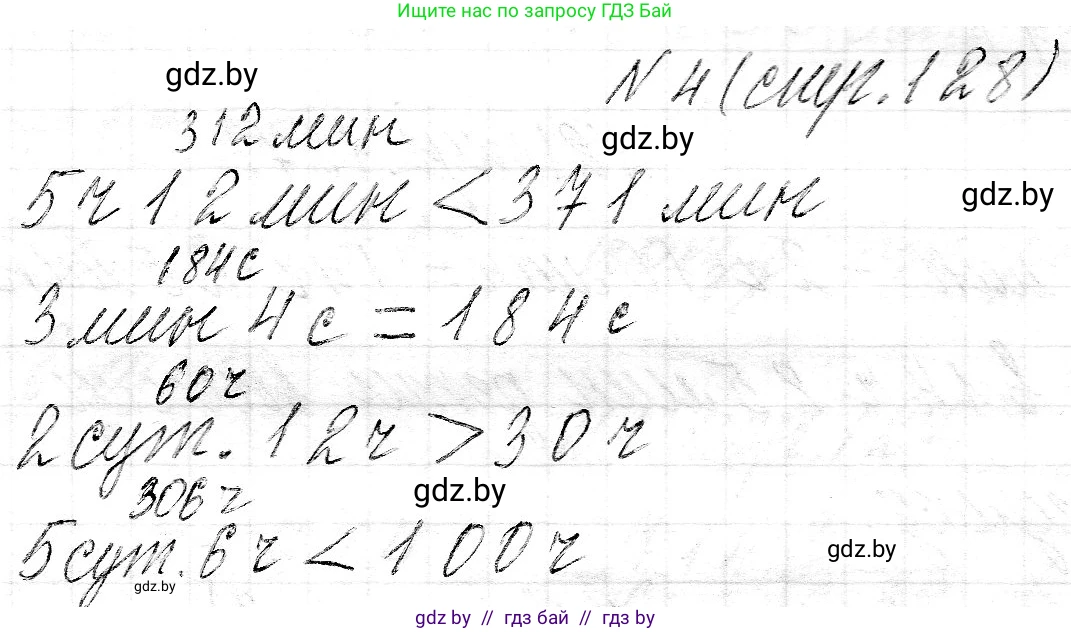 Ищите нас по запросу ГДЗ Бай
gdz.by
N 4 (стр. 128)
312 мин
gdz.by
5 ч 12 мин < 371 мин
gdz.by
184 с
3 мин 4 с = 184 с
60 ч
2 сут. 12 ч > 30 ч
306 ч
gdz.by
5 сут. 6 ч < 100 ч
gdz.by
gdz.by
gdz.by // гдз бай // гдз by